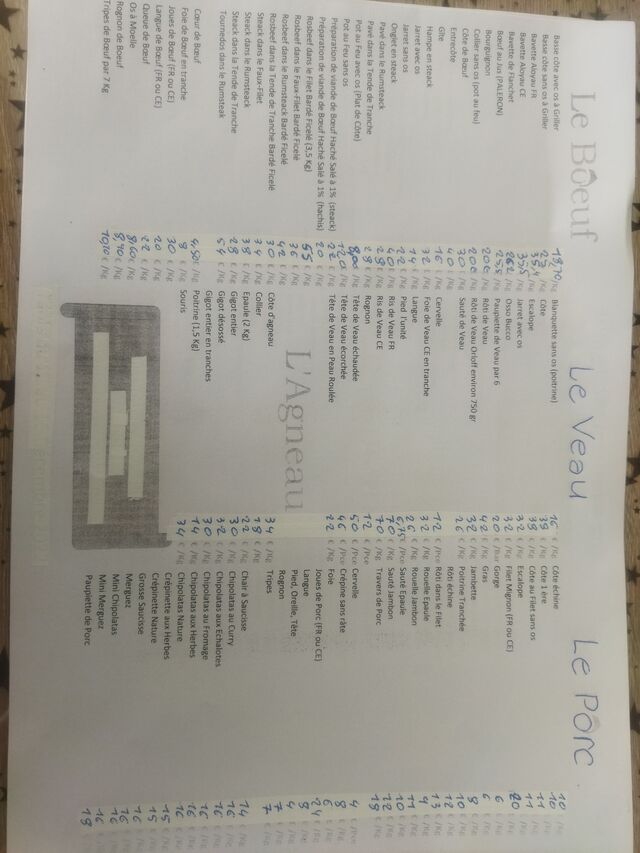 Le Bœuf
Basse côte avec os à Griller 18,70 € /Kg
Basse côte sans os à Griller 23 € /Kg
Bavette Aloyau FR € /Kg
Bavette Aloyau CE € /Kg
Bavette de Flanchet € /Kg
Bœuf au Jus (PALERON) 25,5 € /Kg
Bourguignon 20€ /Kg
Collier sans os (pot au feu) 20€ /Kg
Côte de Bœuf 30 € /Kg
Entrecôte 40 € /Kg
Gîte 16 € /Kg
Hampe en steack 32 € /Kg
Jarret avec os 14 € /Kg
Jarret sans os 22 € /Kg
Onglet en steack € /Kg
Pavé dans le Rumsteack € /Kg
Pavé dans la Tende de Tranche 28 € /Kg
Pot au Feu avec os (Plat de Côte) € /Kg
Pot au Feu sans os € /Kg
Préparation de viande de Bœuf Haché Salé à 1% (steack) 22 € /Kg
Préparation de viande de Bœuf Haché Salé à 1% (hachis) 20 € /Kg
Rosbeef dans le Filet Bardé Ficelé (3,5 Kg) 55 € /Kg
Rosbeef dans le Faux-Filet Bardé Ficelé 36 € /Kg
Rosbeef dans le Rumsteack Bardé Ficelé 42 € /Kg
Rosbeef dans la Tende de Tranche Bardé Ficelé 30 € /Kg
Steack dans le Faux-Filet 34 € /Kg
Steack dans le Rumsteack 38 € /Kg
Steack dans la Tende de Tranche 28 € /Kg
Tournedos dans le Rumsteak 54 € /Kg
Cœur de Bœuf 4,50 € /Kg
Foie de Bœuf en tranche 8 € /Kg
Joues de Bœuf (FR ou CE) 30 € /Kg
Langue de Bœuf (FR ou CE) 20 € /Kg
Queue de Bœuf 22 € /Kg
Os à Moelle 8,60 € /Kg
Rognon de Boeuf 8,40 € /Kg
Tripes de Bœuf par 7 Kg 10,10 € /Kg
Le Veau
Blanquette sans os (poitrine) 16 € /Kg
Côte 39 € /Kg
Escalope 38 € /Kg
Jarret avec os 32 € /Kg
Osso Bucco 32 € /Kg
Paupiette de Veau par 6 20 € /Kg
Rôti de Veau 42 € /Kg
Rôti de Veau Orloff environ 750 gr 32 € /Kg
Sauté de Veau 26 € /Kg
Cervelle 12 € /Pce
Foie de Veau CE en tranche 32 € /Kg
Langue 26 € /Kg
Pied l'unité 6,75 € /Pce
Ris de Veau FR 70 € /Kg
Ris de Veau CE 70 € /Kg
Rognon 12 € /Kg
Tête de Veau échaudée 50 € /Pce
Tête de Veau écorchée 46 € /Pce
Tête de Veau en Peau Roulée 22 € /Kg
L'Agneau
Côte d'agneau 34 € /Kg
Collier 18 € /Kg
Epaule (2 Kg) 22 € /Kg
Gigot entier 30 € /Kg
Gigot désossé 32 € /Kg
Gigot entier en tranches 30 € /Kg
Poitrine (1,5 Kg) 14 € /Kg
Souris 34 € /Kg
Le Porc
Côte échine 10 € /Kg
Côte 1 ère 10 € /Kg
Côte au Filet sans os 11 € /Kg
Escalope 11 € /Kg
Filet Mignon (FR ou CE) 20 € /Kg
Gorge 6 € /Kg
Gras 6 € /Kg
Jambette 8 € /Kg
Poitrine Tranchée 10 € /Kg
Rôti échine 12 € /Kg
Rôti dans le Filet 13 € /Kg
Rouelle Epaule 9 € /Kg
Rouelle Jambon 11 € /Kg
Sauté Epaule 10 € /Kg
Sauté Jambon 12 € /Kg
Travers de Porc 18 € /Kg
Cervelle 4 € /Pce
Crépine sans râte 8 € /Kg
Foie 6 € /Kg
Joues de Porc (FR ou CE) 24 € /Kg
Langue 8 € /Kg
Pied, Oreille, Tête 4 € /Kg
Rognon 7 € /Kg
Tripes 7 € /Kg
Chair à Saucisse 14 € /Kg
Chipolatas au Curry 16 € /Kg
Chipolatas aux Echalotes 16 € /Kg
Chipolatas au Fromage 16 € /Kg
Chipolatas aux Herbes 16 € /Kg
Chipolatas Nature 16 € /Kg
Crépinette aux Herbes 15 € /Kg
Crépinette Nature 15 € /Kg
Grosse Saucisse 16 € /Kg
Merguez 16 € /Kg
Mini Chipolatas 16 € /Kg
Mini Merguez 16 € /Kg
Paupiette de Porc 18 € /Kg